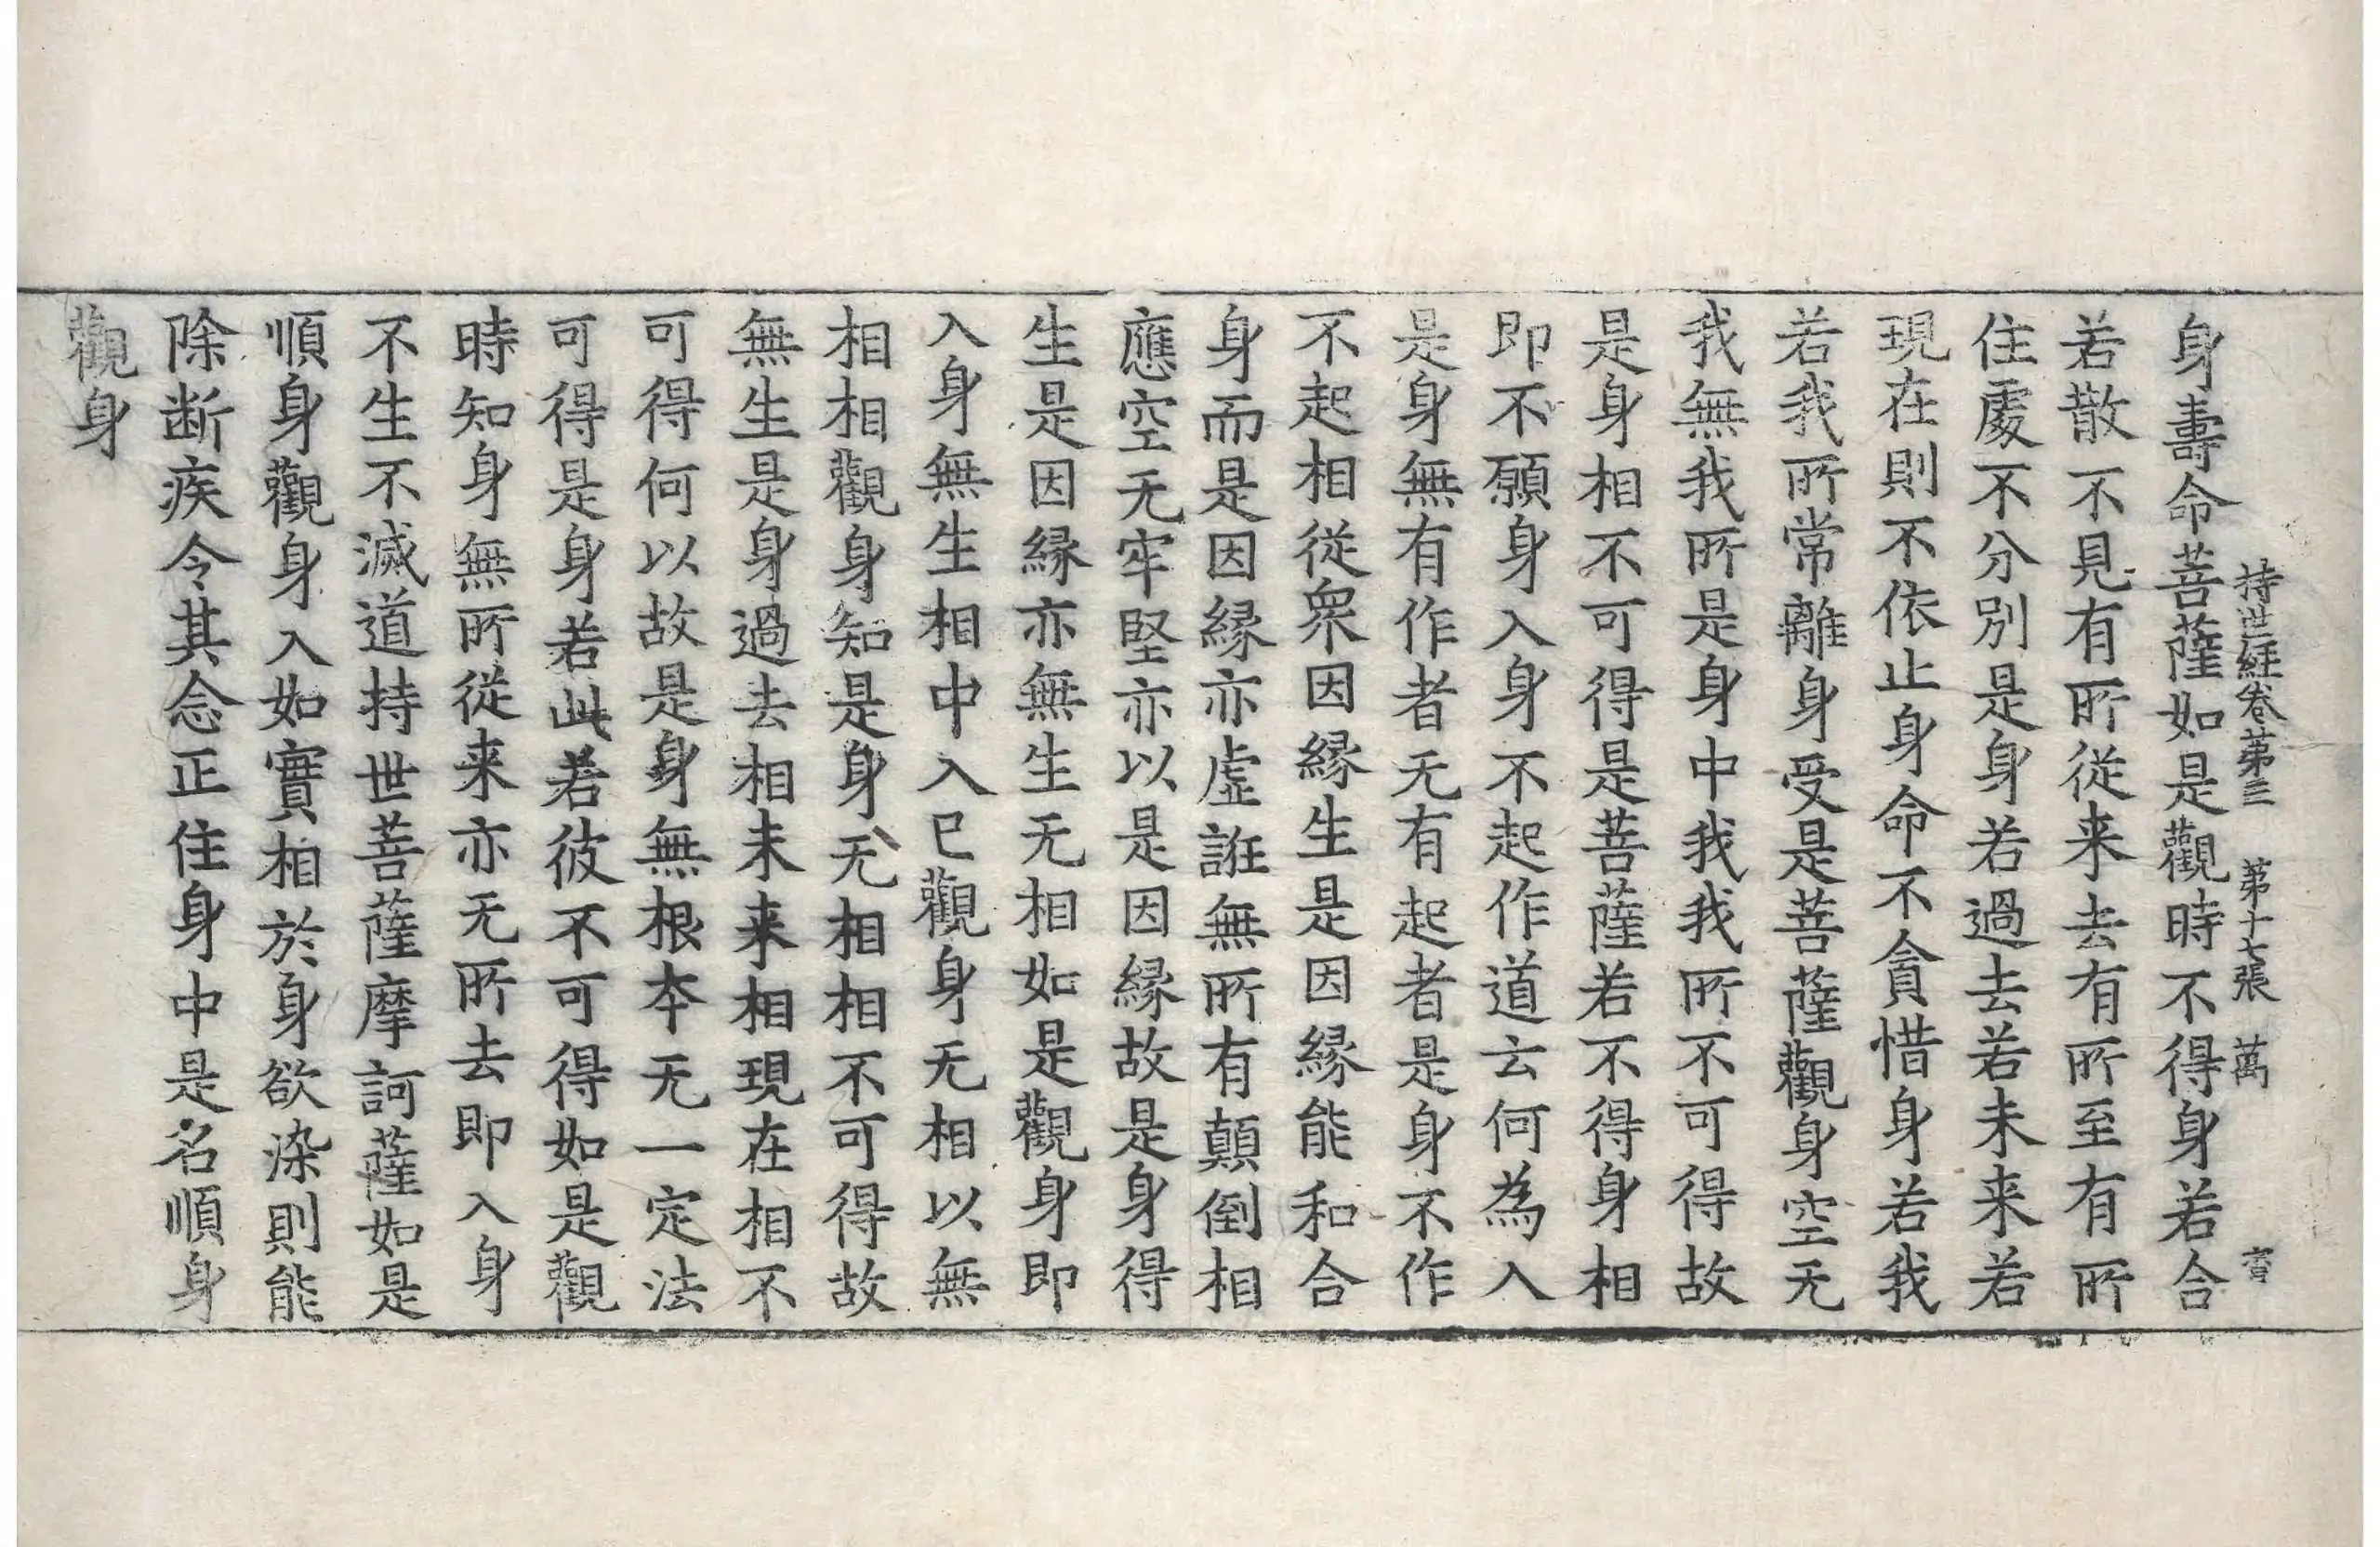 持世經卷第三 第十七張 萬
身壽命菩薩如是觀時不得身若合
若散不見有所從来去有所至有所
住處不分別是身若過去若未来若
現在則不依止身命不貪惜身若我
若我所常離身受是菩薩觀身空无
我無我所是身中我我所不可得故
是身相不可得是菩薩若不得身相
即不願身入身不起作道云何為入
是身無有作者无有起者是身不作
不起相從衆因縁生是因縁能和合
身而是因縁亦虛誑無所有顛倒相
應空无牢堅亦以是因縁故是身得
生是因縁亦無生无相如是觀身即
入身無生相中入已觀身无相以無
相相觀身知是身无相相不可得故
無生是身過去相未来相現在相不
可得何以故是身無根本无一定法
可得是身若此若彼不可得如是觀
時知身無所從来亦无所去即入身
不生不滅道持世菩薩摩訶薩如是
順身觀身入如實相於身欲染則能
除断疾令其念正住身中是名順身
觀身